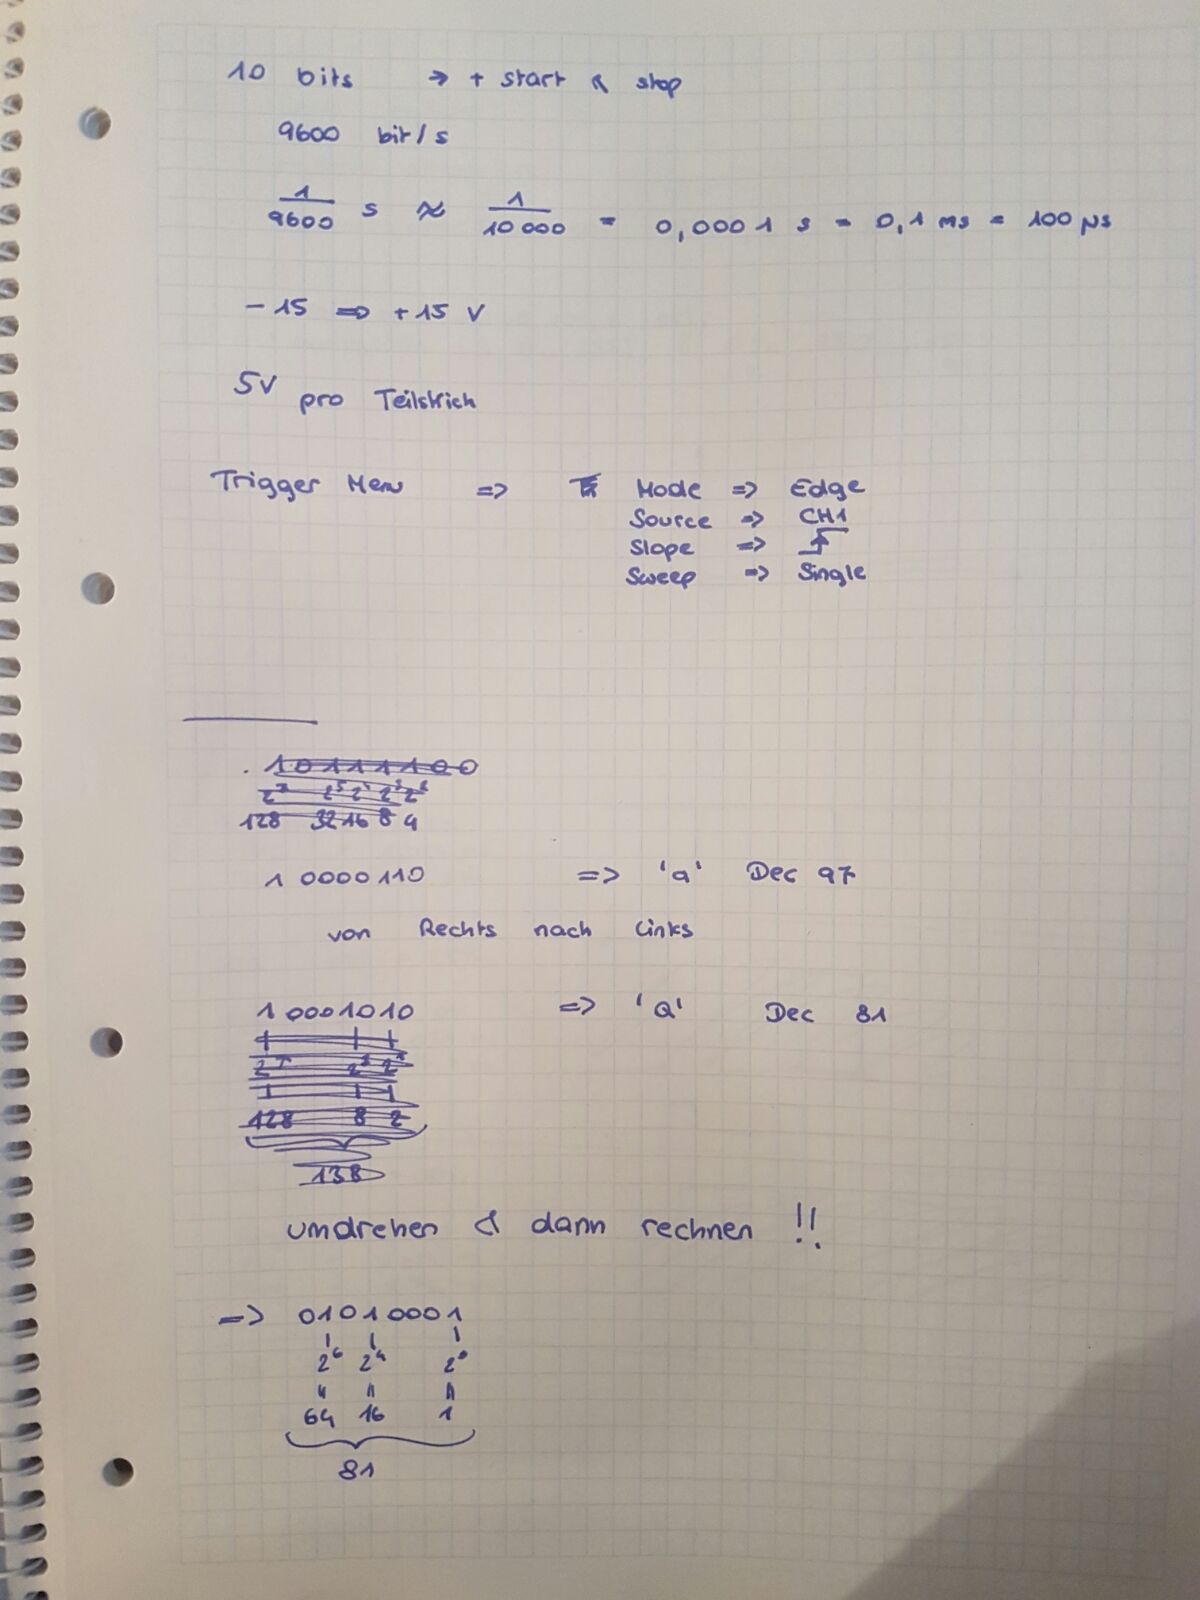 10 bits → + start & stop
9600 bit/s
1/9600 s ≈ 1/10 000 = 0,0001 s = 0,1 ms = 100 µs
-15 => +15 V
5V pro Teilstrich
Trigger Menu => Mode => Edge
Source => CH1
Slope =>
Sweep => Single
10111100
2⁷ 2⁵ 2⁴ 2³ 2²
128 32 16 8 4
1 0000110 => 'a' Dec 97
von Rechts nach Links
1 0001010 => 'Q' Dec 81
2⁷ 2³ 2¹
128 8 2
138
umdrehen & dann rechnen !!
=> 01010001
2⁶ 2⁴ 2⁰
64 16 1
81